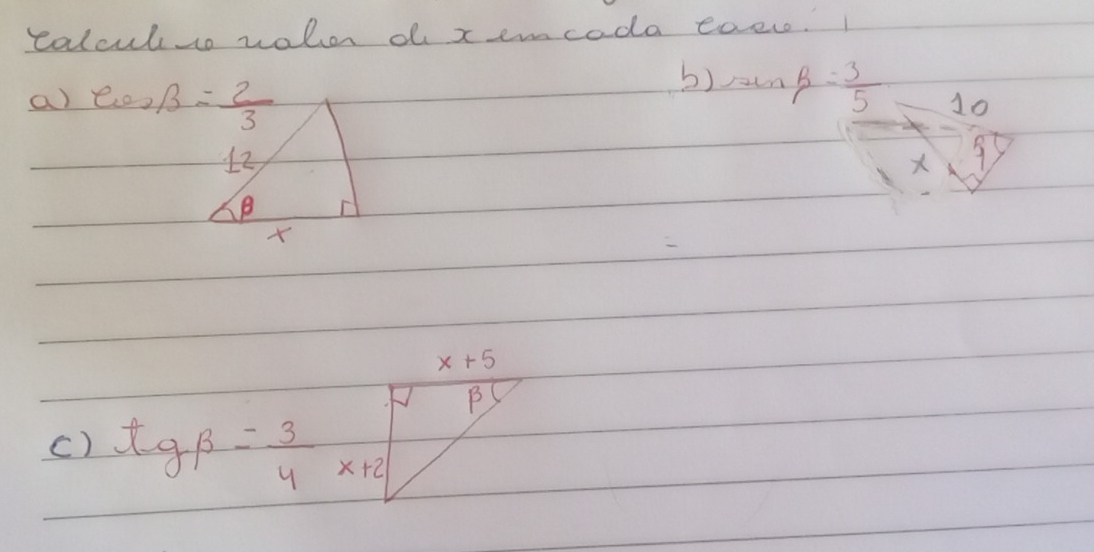 Calcule o valor de x em cada caso.
a) cos β = 2/3
12
β
x
b) sen β = 3/5
10
β
x
x + 5
β
c) tg β = 3/4
x+2